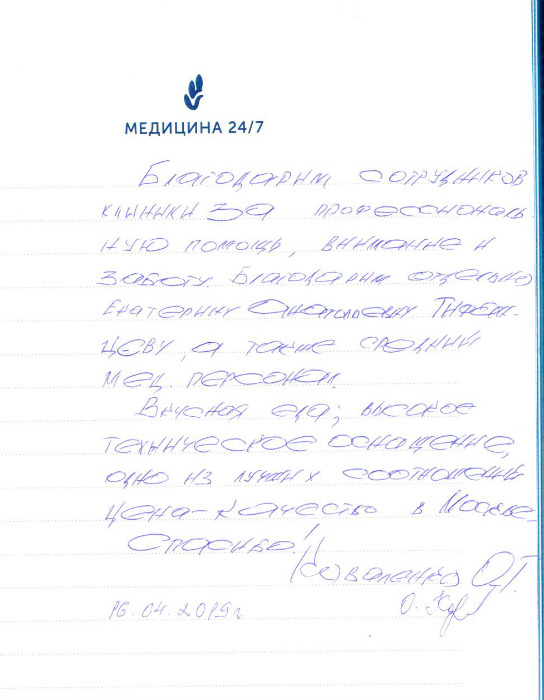 МЕДИЦИНА 24/7
Благодарим сотрудников
клиники за профессиональ-
ную помощь, внимание и
заботу. Благодарим отдельно
Екатерину Анатольевну
цеву, а также средний
мед. персонал.
Вкусная еда; высокое
техническое оснащение,
одно из лучших соотношений
цена-качество в Москве.
Спасибо!
Коваленко О.Г.
16.04.2019г